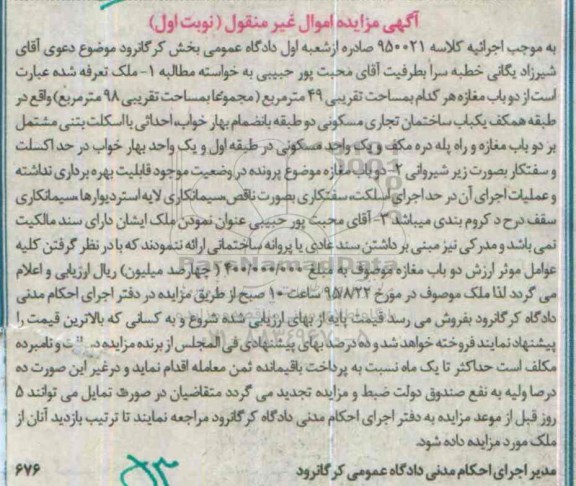 آگهی مزایده اموال غیر منقول (نوبت اول)
به موجب اجرائیه کلاسه ۹۵۰۰۲۱ صادره ازشعبه اول دادگاه عمومی بخش کرگانرود موضوع دعوی آقای
شیرزاد یگانی خطبه سرا بطرفیت آقای محبت پور حبیبی به خواسته مطالبه ۱- ملک تعرفه شده عبارت
است از دو باب مغازه هر کدام بمساحت تقریبی ۴۹ مترمربع (مجموعا بمساحت تقریبی ۹۸ مترمربع) واقع در
طبقه همکف یکباب ساختمان تجاری مسکونی دو طبقه بانضمام بهار خواب، احداثی با اسکلت بتنی مشتمل
بر دو باب مغازه و راه پله در همکف و یک واحد مسکونی در طبقه اول و یک واحد بهار خواب در حد اکسلت
و سفتکار بصورت زیر شیروانی ۲- دو باب مغازه موضوع پرونده در وضعیت موجود قابلیت بهره برداری نداشته
و عملیات اجرای آن در حد اجرای اسلکت، سفتکاری بصورت ناقص، سیمانکاری لایه استر دیوارها، سیمانکاری
سقف در حد کروم بندی میباشد ۳- آقای محبت پور حبیبی عنوان نمودن ملک ایشان دارای سند مالکیت
نمی باشد و مدرکی نیز مبنی بر داشتن سند عادی یا پروانه ساختمانی ارائه ننمودند که با در نظر گرفتن کلیه
عوامل موثر ارزش دو باب مغازه موصوف به مبلغ ۱۴۰۰/۰۰۰/۰۰۰ چهارصد میلیون) ریال ارزیابی و اعلام
می گردد لذا ملک موصوف در مورخ ۹۵/۸/۲۲ ساعت ۱۰ صبح از طریق مزایده در دفتر اجرای احکام مدنی
دادگاه کرگانرود بفروش می رسد قیمت پایه از بهای ارزیابی شده شروع و به کسانی که بالاترین قیمت را
پیشنهاد نمایند فروخته خواهد شد و ده درصد بهای پیشنهادی فی المجلس از برنده مزایده و نامبرده
مکلف است حداکثر تا یک ماه نسبت به پرداخت باقیمانده ثمن معامله اقدام نماید و درغیر این صورت ده
درصا ولیه به نفع صندوق دولت ضبط و مزایده تجدید می گردد متقاضیان در صورت تمایل می توانند ۵
روز قبل از موعد مزایده به دفتر اجرای احکام مدنی دادگاه کرگانرود مراجعه نمایند تا ترتیب بازدید آنان از
ملک مورد مزایده داده شود.
مدیر اجرای احکام مدنی دادگاه عمومی کرگانرود
۶۷۶
ParsNamadData